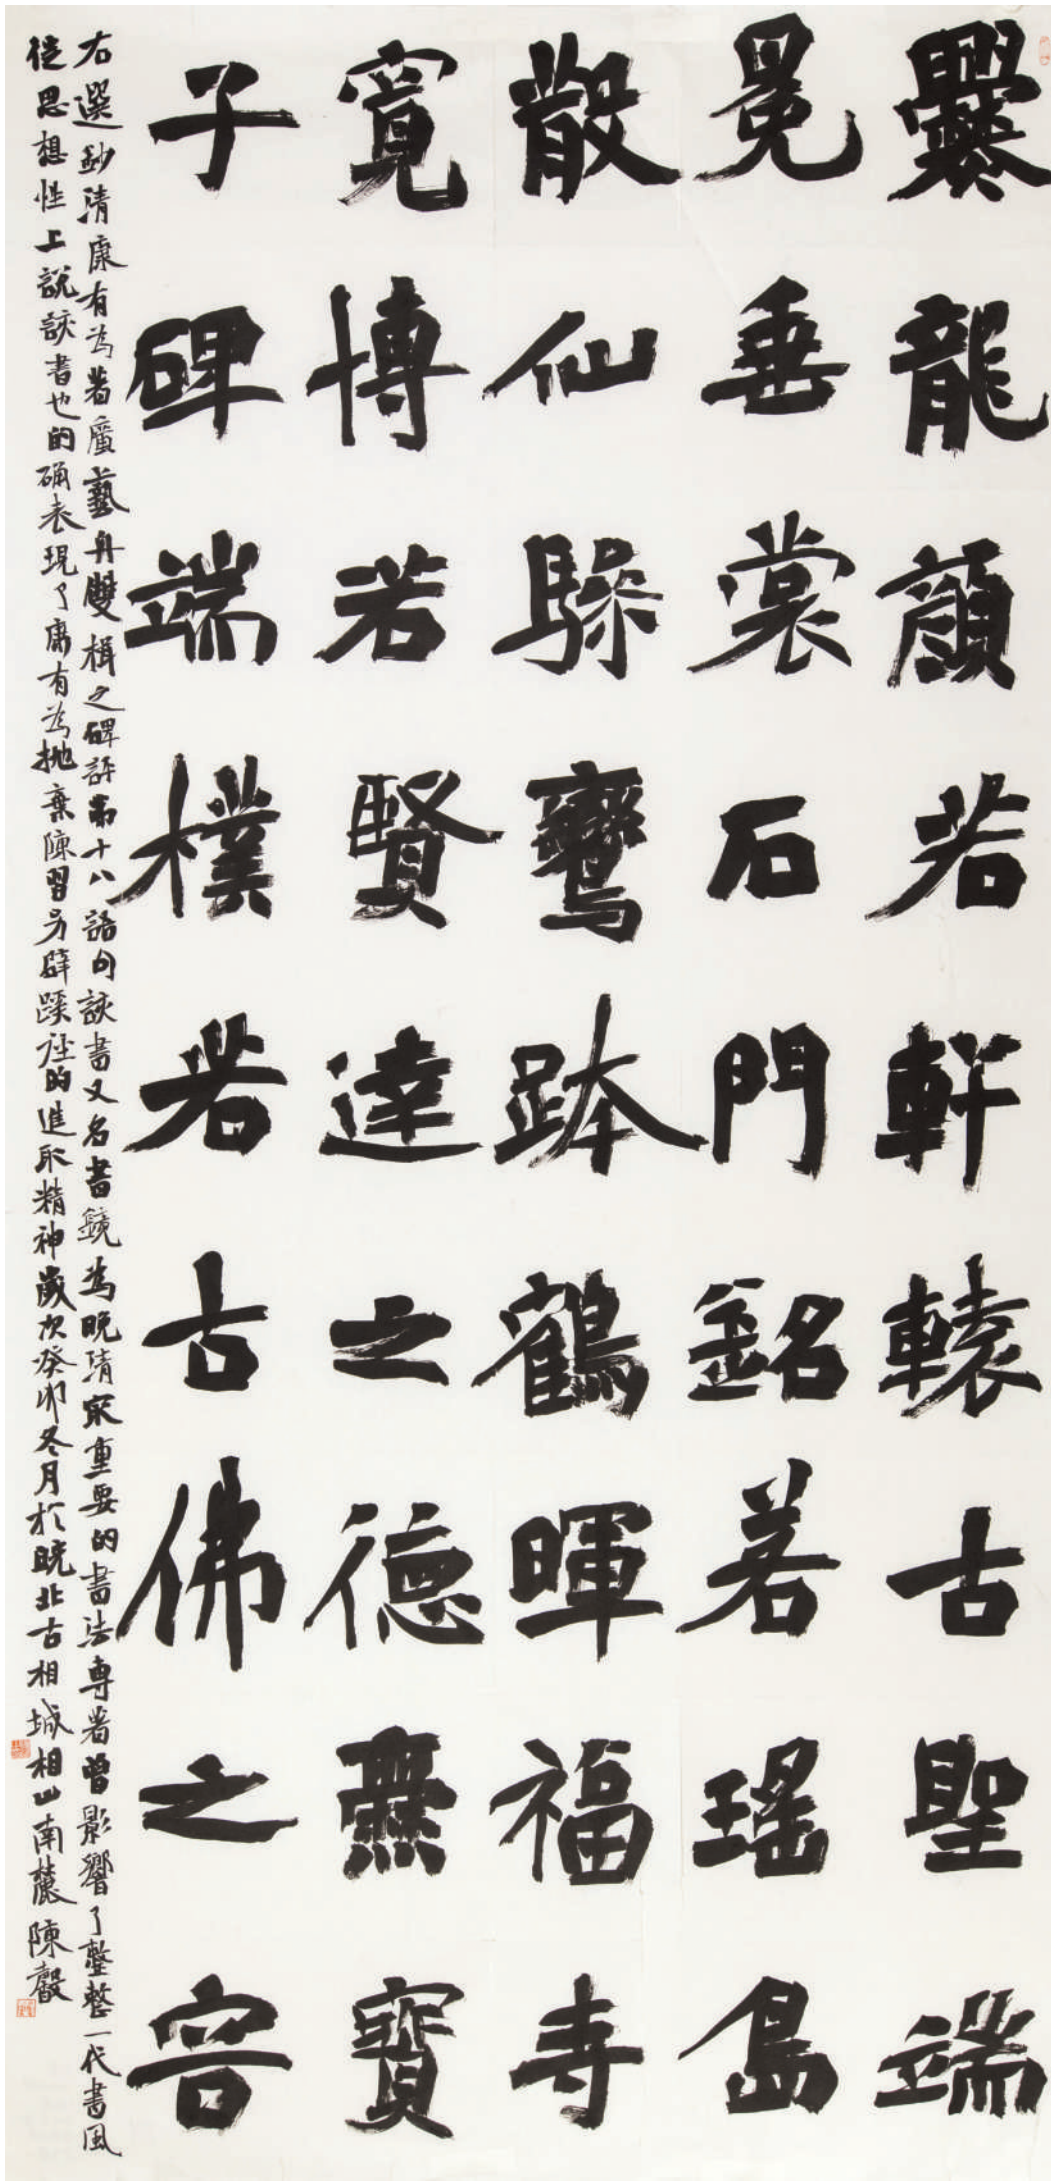 爨龍顏若軒轅古聖端
冕垂裳石門銘若瑤島
散仙驂鸞跨鶴暉福寺
寬博若賢達之德無寶
子碑端樸若古佛之容
右選鈔清康有為著廣藝舟雙楫之碑評第十八語句該書又名書鏡為晚清最重要的書法專著曾影響了整整一代書風
從思想性上說該書也的確表現了康有為拋棄陳習另辟蹊徑的進取精神歲次癸卯冬月於皖北古相城相山南麓陳